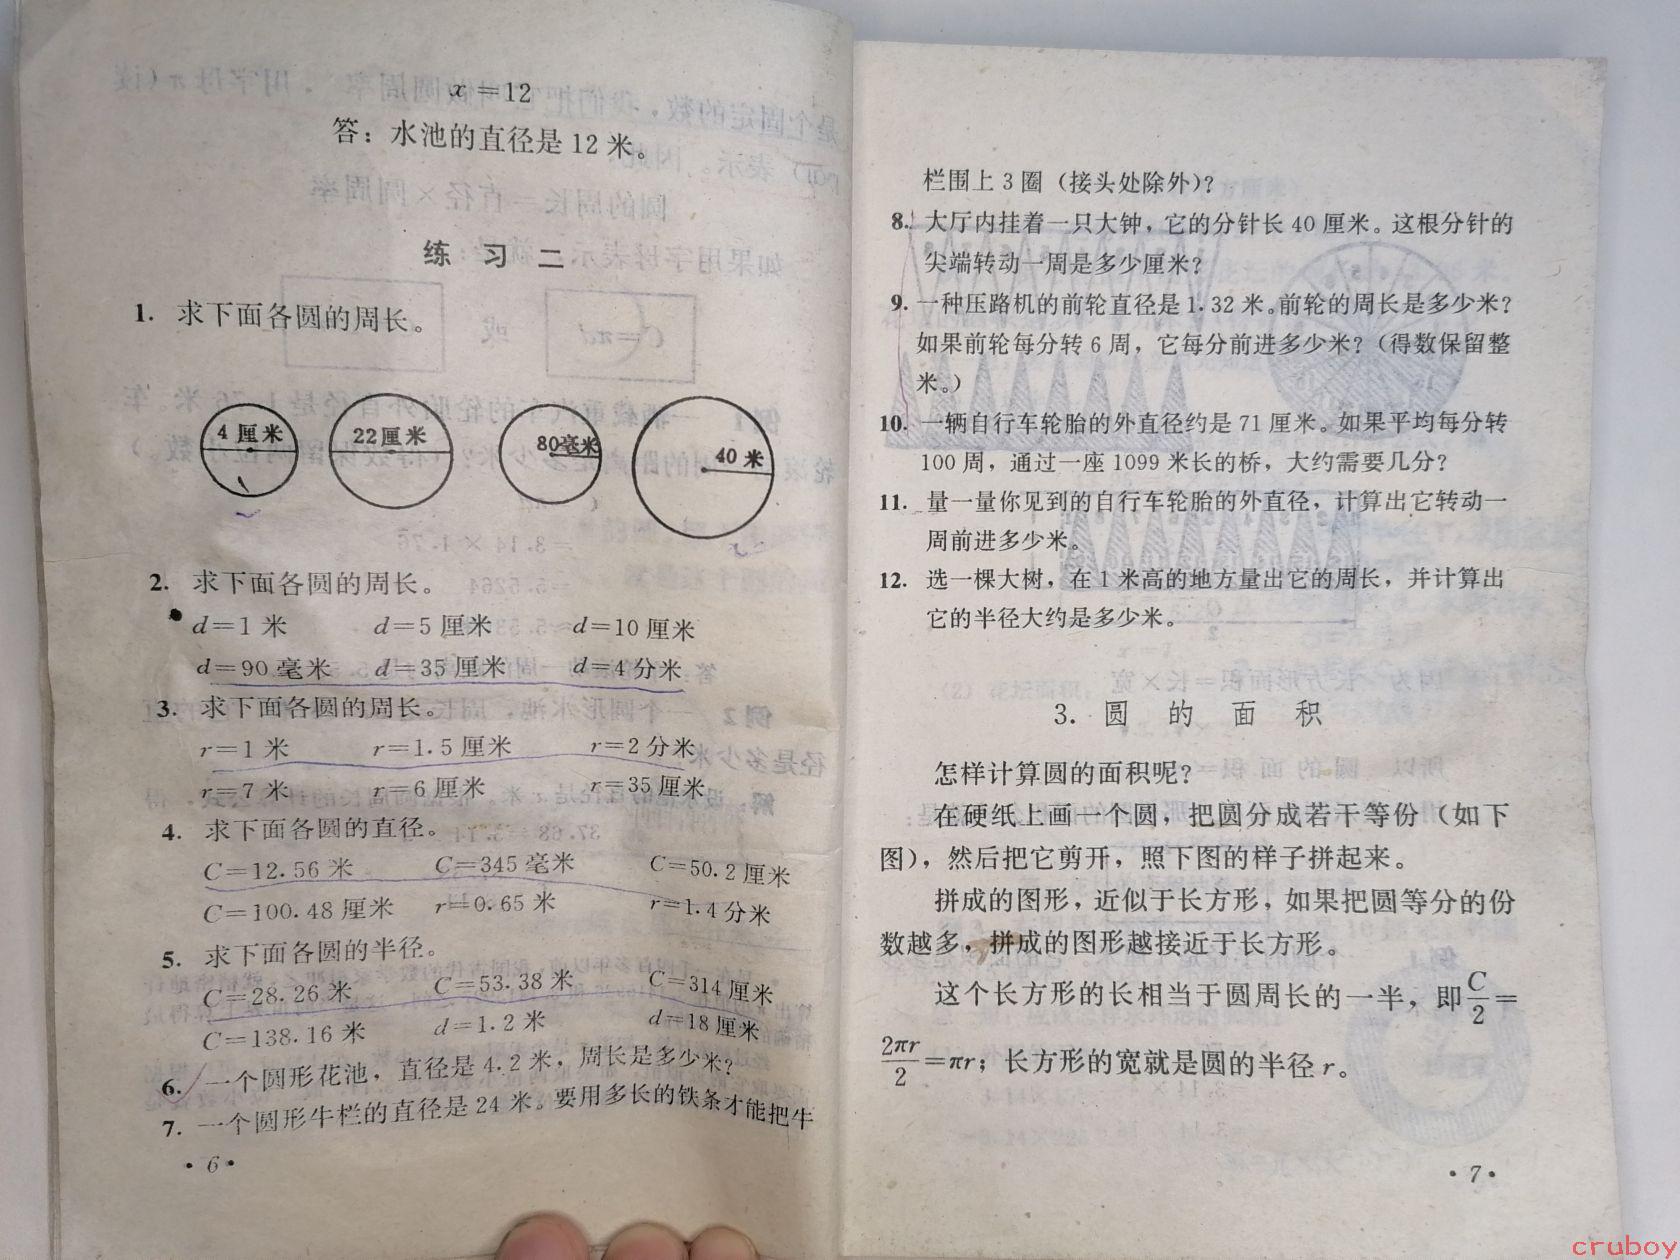 x=12
答：水池的直径是12米。
练 习 二
1. 求下面各圆的周长。
4厘米 22厘米 80毫米 40米
2. 求下面各圆的周长。
d=1米 d=5厘米 d=10厘米
d=90毫米 d=35厘米 d=4分米
3. 求下面各圆的周长。
r=1米 r=1.5厘米 r=2分米
r=7米 r=6厘米 r=35厘米
4. 求下面各圆的直径。
C=12.56米 C=345毫米 C=50.2厘米
C=100.48厘米 r=0.65米 r=1.4分米
5. 求下面各圆的半径。
C=28.26米 C=53.38米 C=314厘米
C=138.16米 d=1.2米 d=18厘米
6. 一个圆形花池，直径是4.2米，周长是多少米？
7. 一个圆形牛栏的直径是24米。要用多长的铁条才能把牛
·6·
栏围上3圈（接头处除外）？
8. 大厅内挂着一只大钟，它的分针长40厘米。这根分针的
尖端转动一周是多少厘米？
9. 一种压路机的前轮直径是1.32米。前轮的周长是多少米？
如果前轮每分转6周，它每分前进多少米？（得数保留整
米。）
10. 一辆自行车轮胎的外直径约是71厘米。如果平均每分转
100周，通过一座1099米长的桥，大约需要几分？
11. 量一量你见到的自行车轮胎的外直径，计算出它转动一
周前进多少米。
12. 选一棵大树，在1米高的地方量出它的周长，并计算出
它的半径大约是多少米。
3. 圆 的 面 积
怎样计算圆的面积呢？
在硬纸上画一个圆，把圆分成若干等份（如下
图），然后把它剪开，照下图的样子拼起来。
拼成的图形，近似于长方形，如果把圆等分的份
数越多，拼成的图形越接近于长方形。
这个长方形的长相当于圆周长的一半，即C/2=
2πr/2=πr；长方形的宽就是圆的半径r。
·7·
cruboy